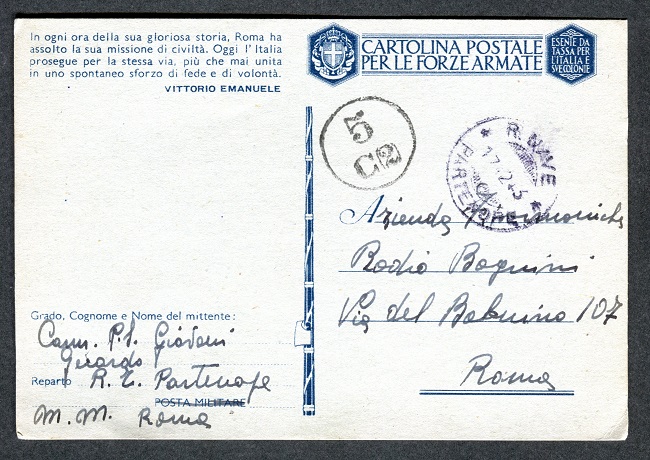 In ogni ora della sua gloriosa storia, Roma ha
assolto la sua missione di civiltà. Oggi l'Italia
prosegue per la stessa via, più che mai unita
in uno spontaneo sforzo di fede e di volontà.
VITTORIO EMANUELE
CARTOLINA POSTALE
PER LE FORZE ARMATE
ESENTE DA
TASSA PER
L'ITALIA E
SUE COLONIE
5
C(2)
R. NAVE
PARTENOPE
Azienda
Radio Bognini
Via del Babuino 107
Roma
Grado, Cognome e Nome del mittente:
Cann. P.S.
Gerardo
Reparto R. E. Partenope
POSTA MILITARE
M. M. Roma